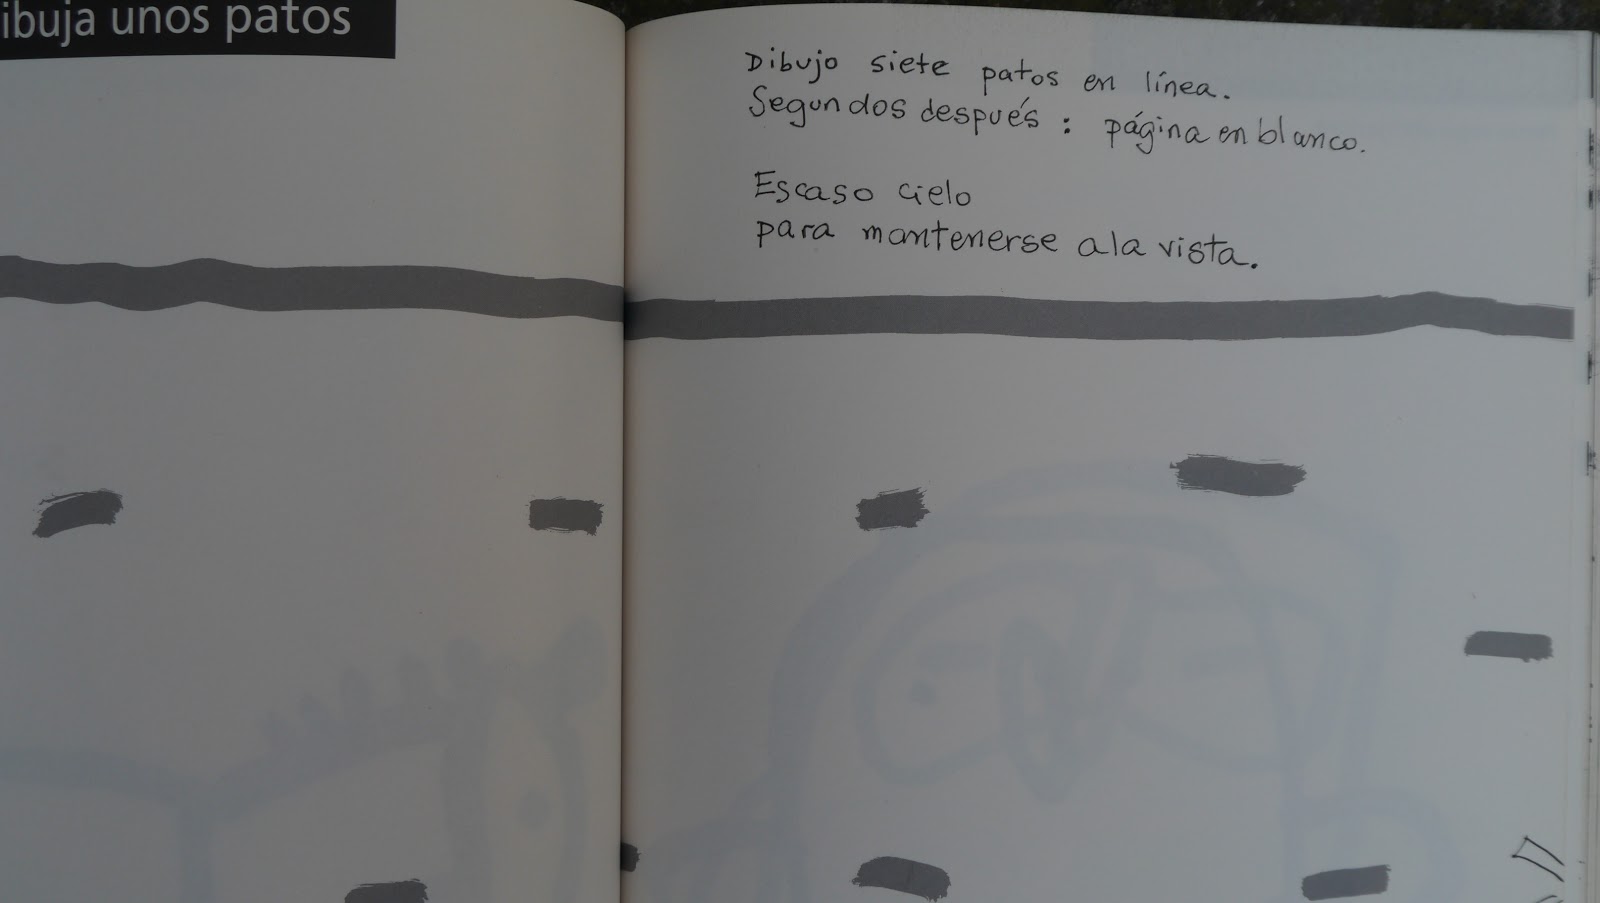 ibuja unos patos
Dibujo siete patos en línea.
Segundos después: página en blanco.
Escaso cielo
para mantenerse a la vista.